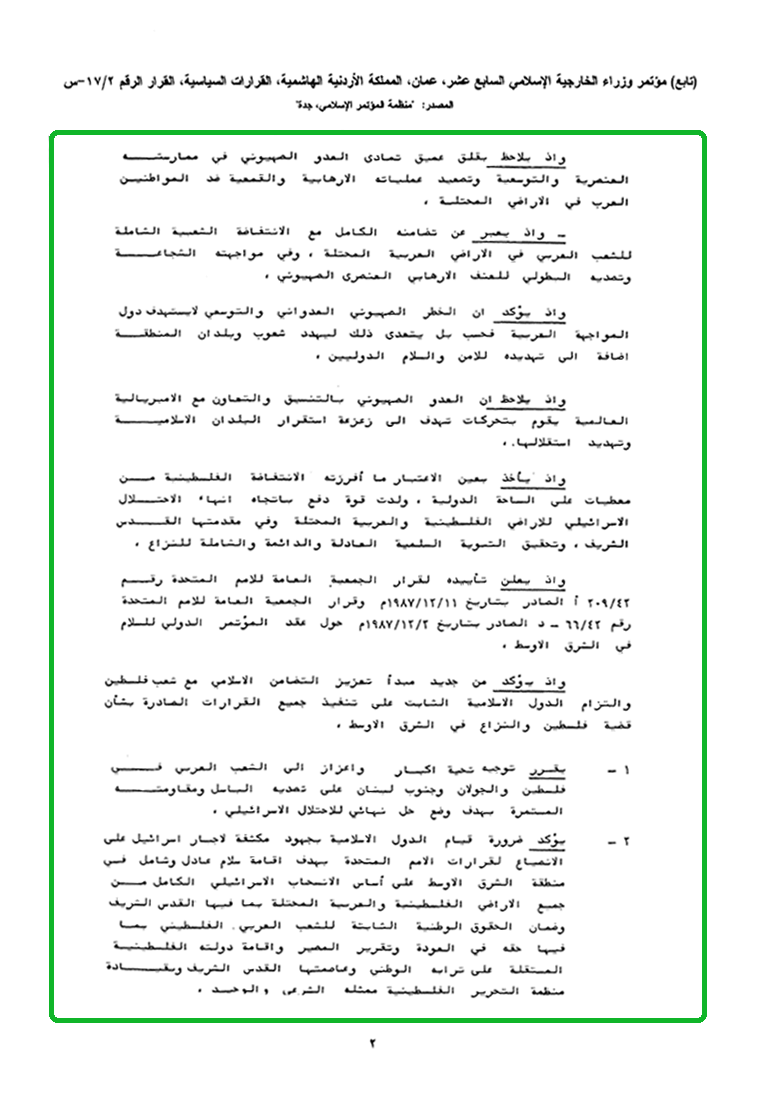 (تابع) مؤتمر وزراء الخارجية الإسلامي السابع عشر، عمان، المملكة الأردنية الهاشمية، القرارات السياسية، القرار الرقم ١٧/٢-س
المصدر: "منظمة المؤتمر الإسلامي، جدة"
واذ يلاحظ بقلق عميق تمادى العدو الصهيوني في ممارسته
العنصرية والتوسعية وتصعيد عملياته الارهابية والقمعية ضد المواطنين
العرب في الاراضي المحتلة ،
– واذ يعبر عن تضامنه الكامل مع الانتفاضة الشعبية الشاملة
للشعب العربي في الاراضي العربية المحتلة ، وفي مواجهته الشجاعة
وتصديه البطولي للعنف الارهابي العنصرى الصهيوني ،
واذ يؤكد ان الخطر الصهيوني العدواني والتوسعي لايستهدف دول
المواجهة العربية فحسب بل يتعدى ذلك ليهدد شعوب وبلدان المنطقة
اضافة الى تهديده للامن والسلام الدوليين ،
واذ يلاحظ ان العدو الصهيوني بالتنسيق والتعاون مع الامبريالية
العالمية يقوم بتحركات تهدف الى زعزعة استقرار البلدان الاسلامية
وتهديد استقلالها ،
واذ يأخذ بعين الاعتبار ما أفرزته الانتفاضة الفلسطينية من
معطيات على الساحة الدولية ، ولدت قوة دفع باتجاه انهاء الاحتلال
الاسرائيلي للاراضي الفلسطينية والعربية المحتلة وفي مقدمتها القدس
الشريف ، وتحقيق التسوية السلمية العادلة والدائمة والشاملة للنزاع ،
واذ يعلن تأييده لقرار الجمعية العامة للامم المتحدة رقم
٢٠٩/٤٢ أ الصادر بتاريخ ١٩٨٧/١٢/١١م وقرار الجمعية العامة للامم المتحدة
رقم ٦٦/٤٢ – د الصادر بتاريخ ١٩٨٧/١٢/٢م حول عقد المؤتمر الدولي للسلام
في الشرق الاوسط ،
واذ يؤكد من جديد مبدأ تعزيز التضامن الاسلامي مع شعب فلسطين
والتزام الدول الاسلامية الثابت على تنفيذ جميع القرارات الصادرة بشأن
قضية فلسطين والنزاع في الشرق الاوسط ،
١ – يقرر توجيه تحية اكبار واعزاز الى الشعب العربي في
فلسطين والجولان وجنوب لبنان على تصديه الباسل ومقاومته
المستمرة بهدف وضع حل نهائي للاحتلال الاسرائيلي ،
٢ – يؤكد ضرورة قيام الدول الاسلامية بجهود مكثفة لاجبار اسرائيل على
الانصياع لقرارات الامم المتحدة بهدف اقامة سلام عادل وشامل في
منطقة الشرق الاوسط على أساس الانسحاب الاسرائيلي الكامل من
جميع الاراضي الفلسطينية والعربية المحتلة بما فيها القدس الشريف
وضمان الحقوق الوطنية الثابتة للشعب العربي الفلسطيني بما
فيها حقه في العودة وتقرير المصير واقامة دولته الفلسطينية
المستقلة على ترابه الوطني وعاصمتها القدس الشريف وبقيادة
منظمة التحرير الفلسطينية ممثله الشرعي والوحيد ،
٢